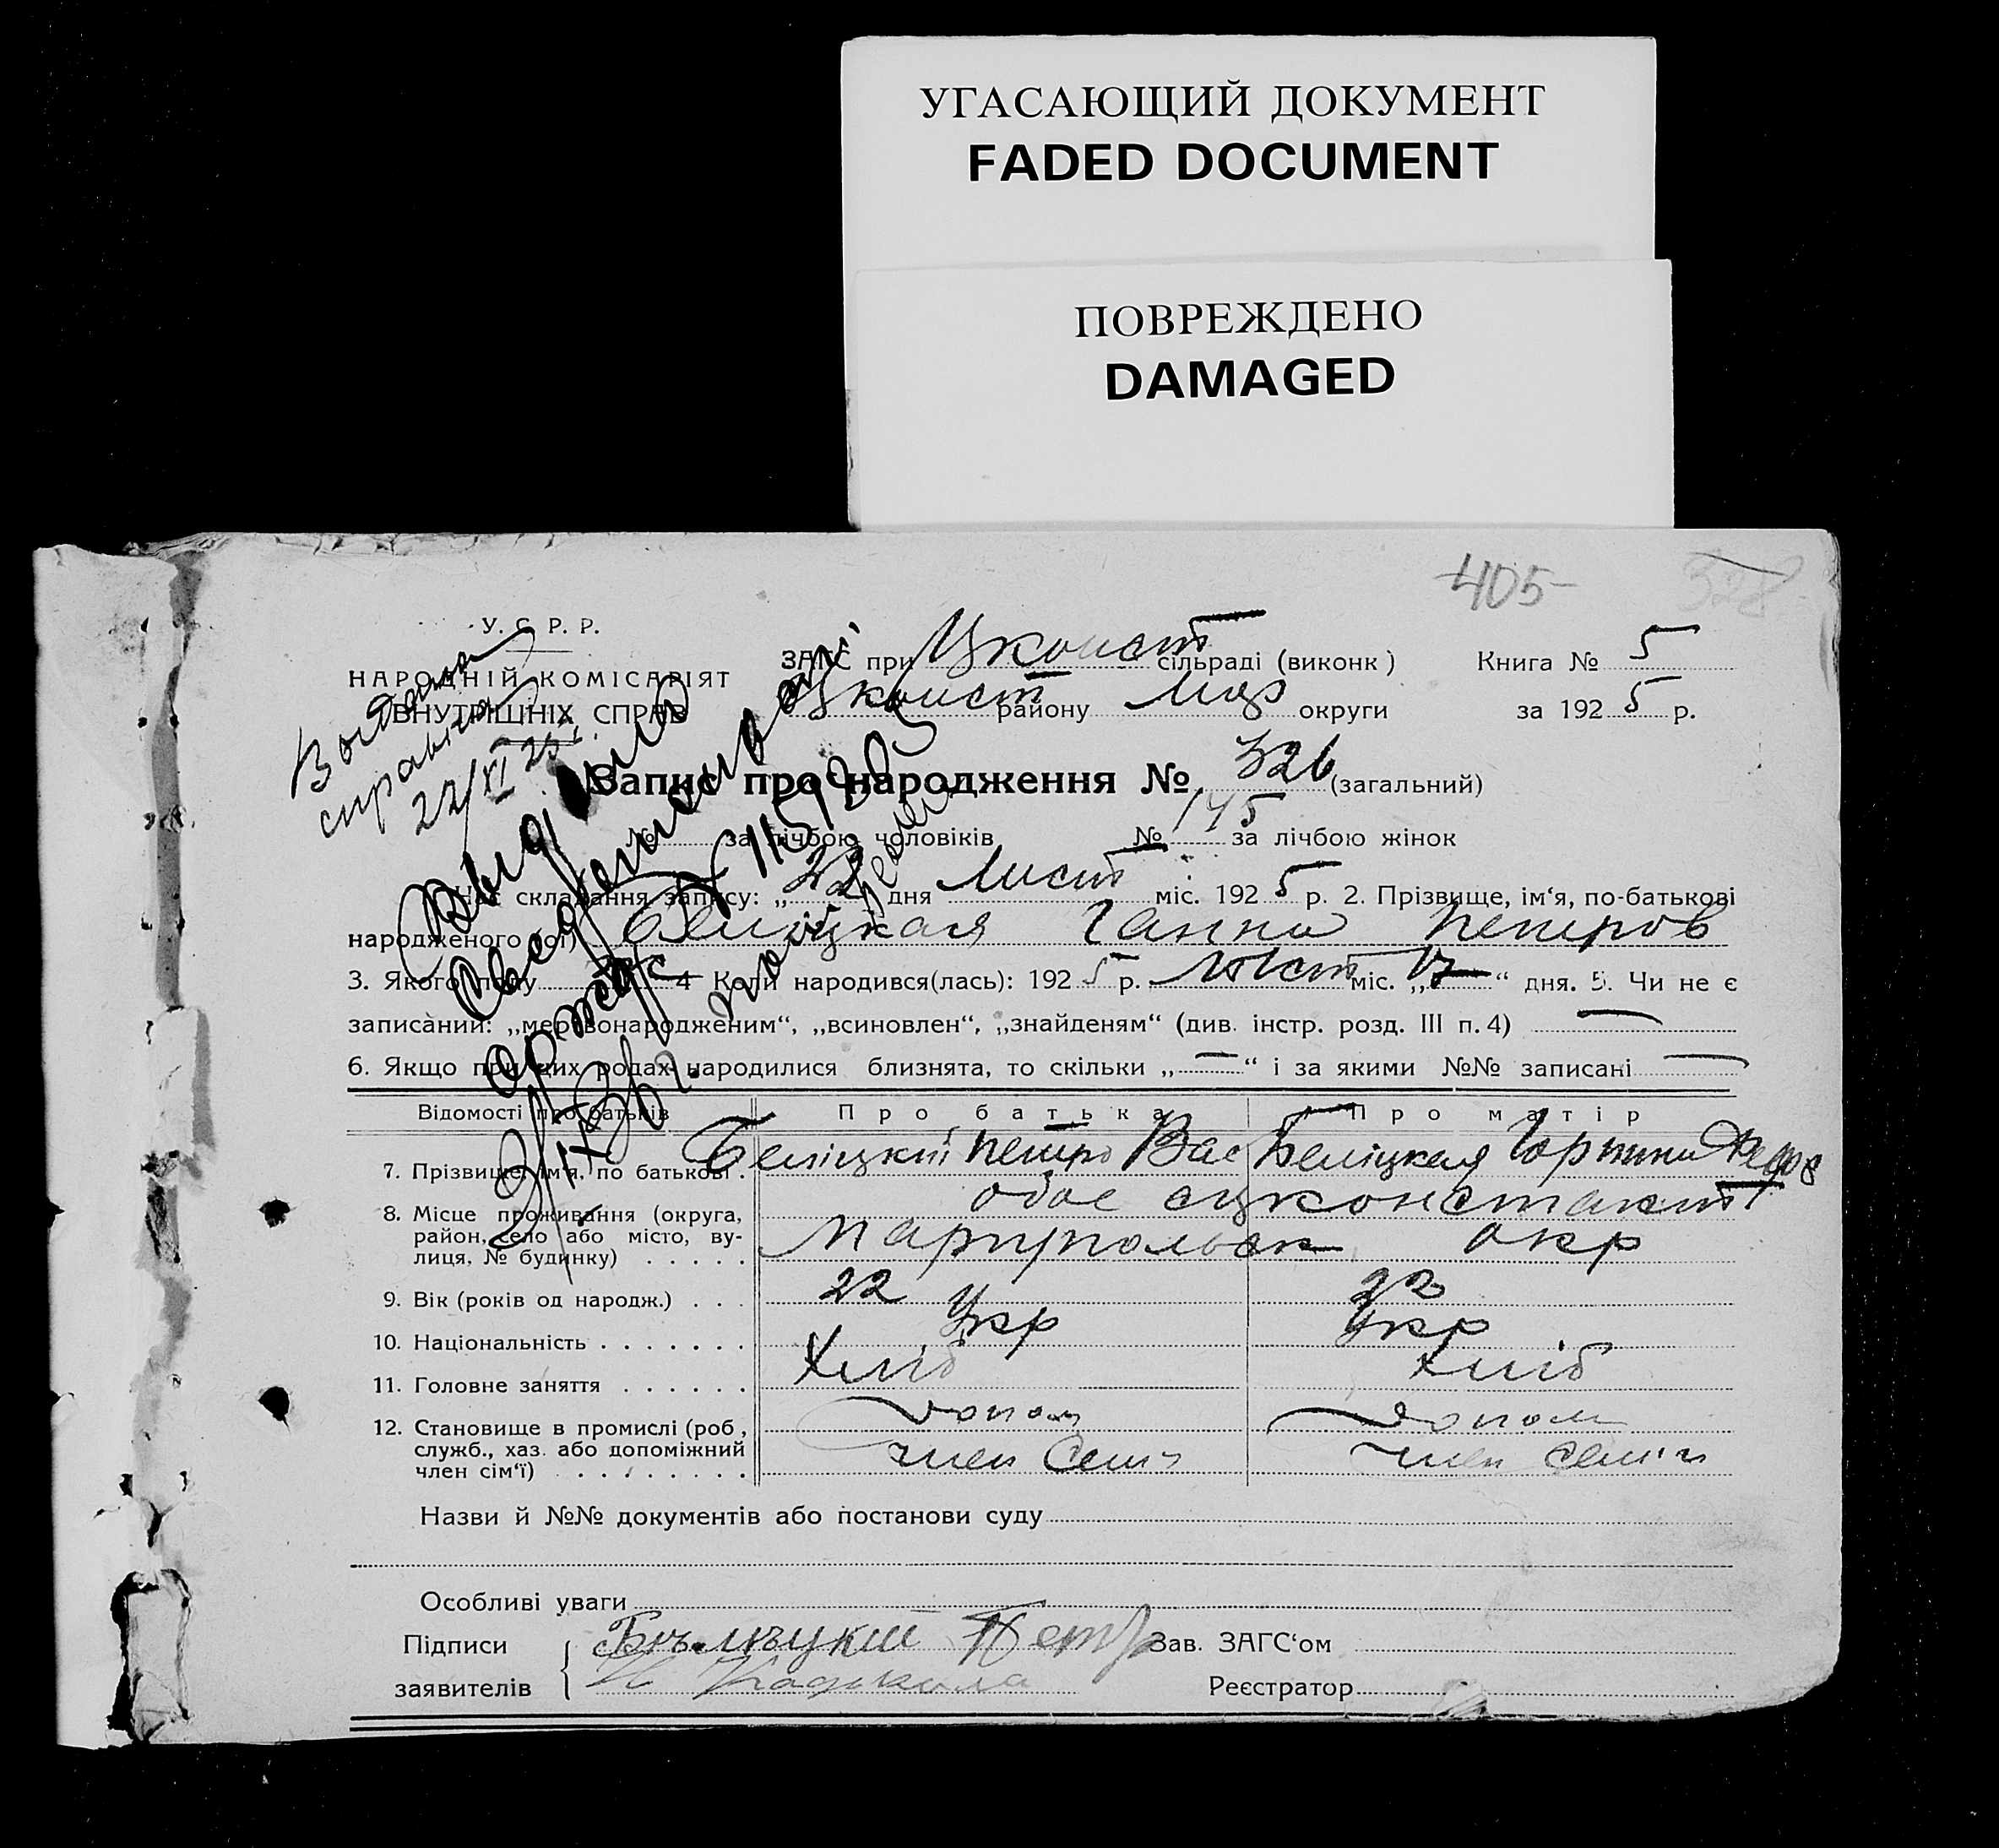 УГАСАЮЩИЙ ДОКУМЕНТ
FADED DOCUMENT
ПОВРЕЖДЕНО
DAMAGED
405
328
У. С. Р. Р.
НАРОДНІЙ КОМІСАРІЯТ
ВНУТРІШНІХ СПРАВ
ЗАГС при Цконст сільраді (виконк)
Цконст району Мар округи
Книга № 5
за 1925 р.
22/XI 25
Запис про народження № 326 (загальний)
№ за лічбою чоловіків № 145 за лічбою жінок
Час складання запису: „22 дня Лист міс. 1925 р. 2. Прізвище, ім‘я, по-батькові
народженого (ої) Беліцкая Ганна Петров
3. Якого полу 4 Коли народився(лась): 1925 р. Лист міс. „17“ дня. 5. Чи не є
записаний: „мертвонародженим“, „всиновлен“, „знайденям“ (див. інстр. розд. III п. 4)
6. Якщо при цих родах народилися близнята, то скільки „—“ і за якими №№ записані —
Відомості про батьків Про батька Про матір
7. Прізвище, ім‘я, по батькові . Беліцкий Петро Вас Беліцкая Горпина Федов
8. Місце проживання (округа, район, село або місто, вулиця, № будинку) . . . . . обое
Маріупольск окр
9. Вік (років од народж.) . . . 22 22
10. Національність . . . . . . . Укр Укр
11. Головне заняття . . . . . . Хліб Хліб
12. Становище в промислі (роб, служб., хаз. або допоміжний член сім‘ї) . . . . . . . . допом член семи допом член семіи
Назви й №№ документів або постанови суду
Особливі уваги
Підписи заявителів { Бѣлѣцкій Петр
Зав. ЗАГС‘ом
Реєстратор